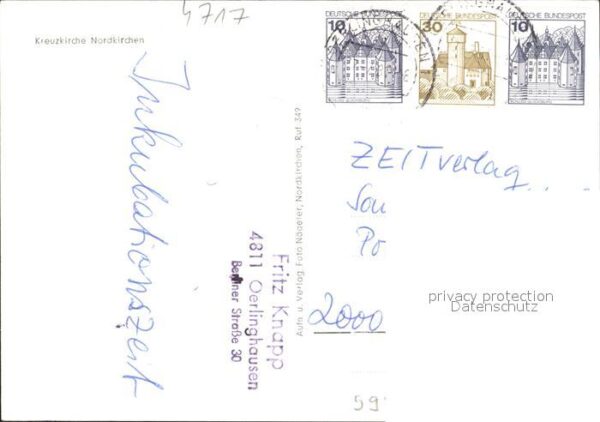 4717
Kreuzkirche Nordkirchen
Inkubationszeit
Fritz Knapp
4811 Oerlinghausen
Berliner Straße 30
Auto u. Verlag Foto Näberer, Nordkirchen, Ruf 349
10 DEUTSCHE BUNDESPOST
30 DEUTSCHE BUNDESPOST
10 DEUTSCHE BUNDESPOST
ZEITverlag
Po
2000
privacy protection
Datenschutz
59